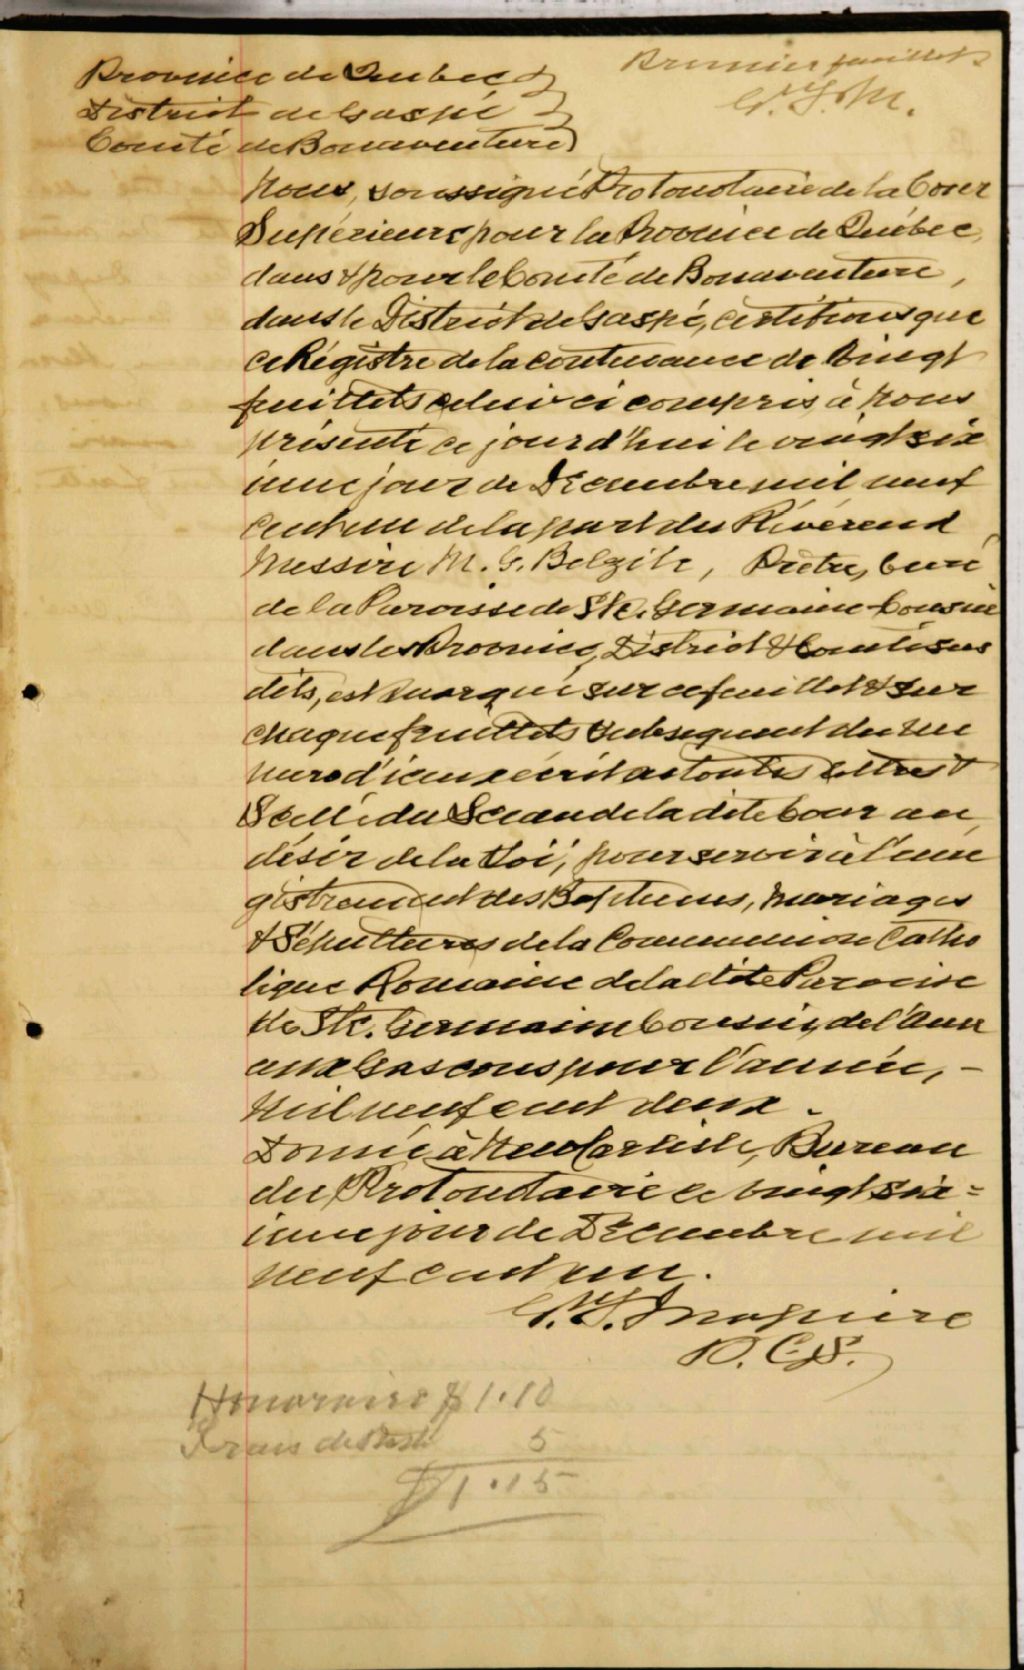 Province de Québec
Premier feuillet
District de Gaspé
Comté de Bonaventure
Nous, soussigné Protonotaire de la Cour
Supérieure pour la Province de Québec,
dans & pour le Comté de Bonaventure,
dans le District de Gaspé, certifions que
ce Régistre de la contenance de Vingt
feuillets celui ci compris à Nous
présenté ce jourd'hui le vingt six
ième jour de Décembre mil neuf
cent un de la part du Révérend
Messire M. G. Belzile, Prêtre, Curé
de la Paroisse de Ste. Germaine Cousin
dans les Province, District & Comté sus
dits, est marqué sur ce feuillet & sur
chaque feuillets subsequent du Nu
mero d'iceux écrit en toutes lettres &
Scellé du Sceau de la dite Cour au
désir de la Loi, pour servir à l'enre
gistrement des Baptemes, Mariages
& Sépultures de la Communion Catho
lique Romaine de la dite Paroisse
de Ste. Germaine Cousin, de l'Anse
aux Gascons pour l'année, -
Mil neuf cent deux.
Donné à New Carlisle, Bureau
du Protonotaire ce vingt six=
ième jour de Décembre mil
neuf cent un.
P.C.S.
Honoraires $1.10
Frais de Poste 5
$1.15